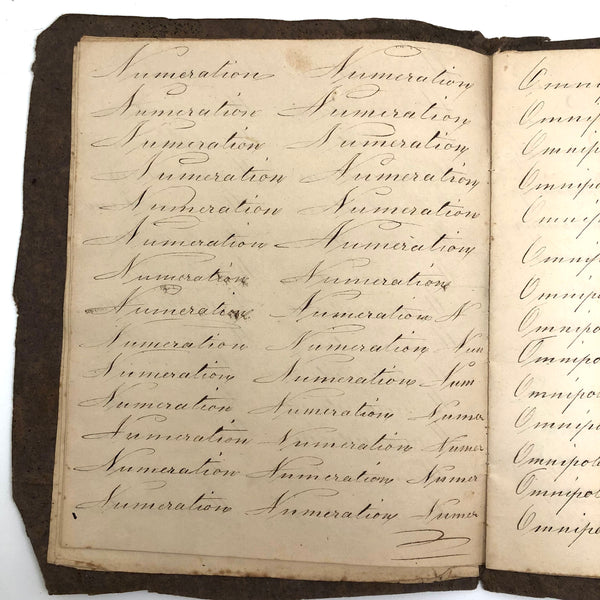 Numeration Numeration
Numeration Numeration
Numeration Numeration
Numeration Numeration
Numeration Numeration
Numeration Numeration
Numeration Numeration
Numeration Numeration N
Numeration Numeration Num
Numeration Numeration Num
Numeration Numeration Numer
Numeration Numeration Numer
Numeration Numeration Numer
Numeration Numeration Numer
Omni
Omnip
Omnip
Omnip
Omnip
Omnip
Omnip
Omnipo
Omnipo
Omnipo
Omnipo
Omnipot
Omnipot
Omnipote